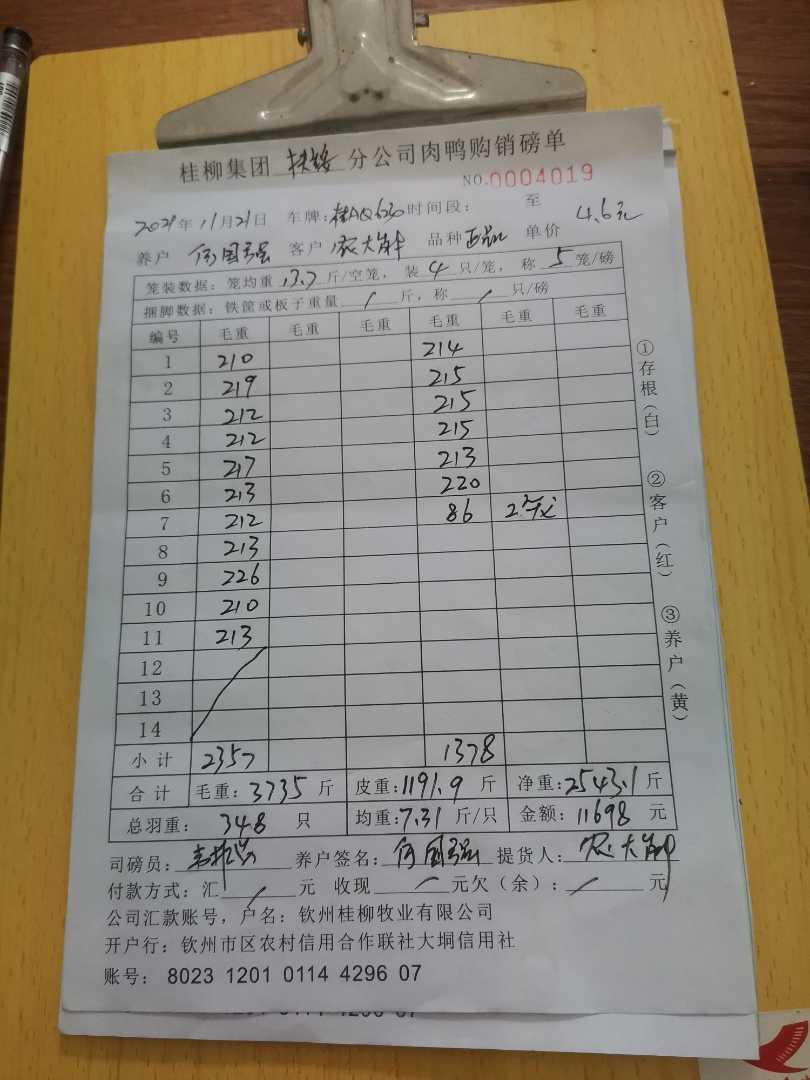 桂柳集团 扶绥 分公司肉鸭购销磅单
NO.0004019
2021年11月21日 车牌:桂AQ630 时间段: 至
养户 何国强 客户 农大 品种 正品 单价 4.6元
笼装数据: 笼均重 13.7 斤/空笼, 装 4 只/笼, 称 5 笼/磅
捆脚数据: 铁筐或板子重量 / 斤, 称 / 只/磅
编号 毛重 毛重 毛重 毛重 毛重 毛重
1 210 214
2 219 215
3 212 215
4 212 215
5 217 213
6 213 220
7 212 86 2笼
8 213
9 226
10 210
11 213
12
13
14
小计 2357 1378
合计 毛重: 3735 斤 皮重: 1191.9 斤 净重: 2543.1 斤
总羽重: 348 只 均重: 7.31 斤/只 金额: 11698 元
司磅员: 养户签名: 何国强 提货人: 农大
付款方式: 汇 / 元 收现 / 元欠(余): / 元
公司汇款账号, 户名: 钦州桂柳牧业有限公司
开户行: 钦州市区农村信用合作联社大垌信用社
账号: 8023 1201 0114 4296 07
①存根(白)
②客户(红)
③养户(黄)